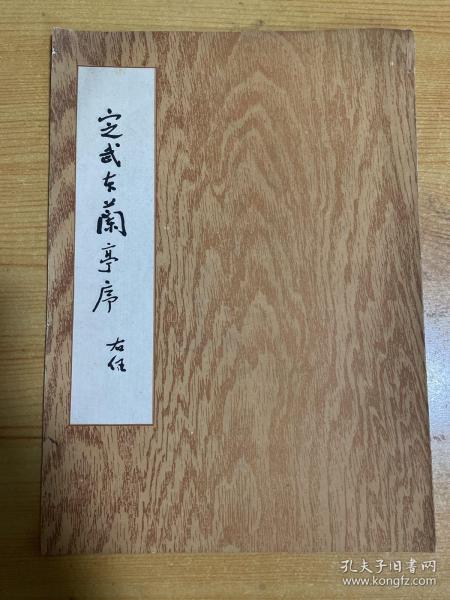 定武本蘭亭序
右任
孔夫子旧书网
www.kongfz.com